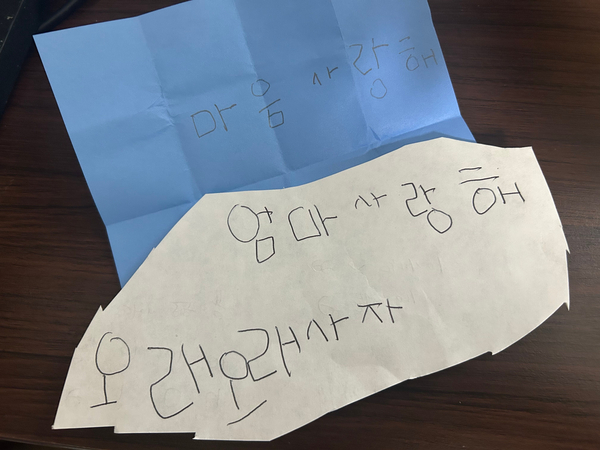 마음 사랑해
엄마 사랑해
오래오래 사자